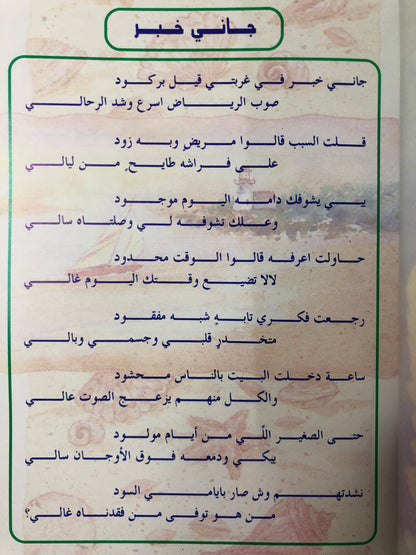 جاني خبر
جاني خبر في غربتي قيل بركود
صوب الرياض اسرع وشد الرحالي
قلت السبب قالوا مريض وبه زود
على فراشه طايح من ليالي
يبي يشوفك دامه اليوم موجود
وعلك تشوفه لي وصلتاه سالي
حاولت اعرفه قالوا الوقت محدود
لالا تضيع وقتك اليوم غالي
رجعت فكري تابهٍ شبه مفقود
متخدرٍ قلبي وجسمي وبالي
ساعة دخلت البيت بالناس محشود
والكل منهم يزعج الصوت عالي
حتى الصغير اللّي من أيام مولود
يبكي ودمعه فوق الأوجان سالي
نشدتهم وش صار بايامي السود
من هو توفى من فقدناه غالي؟